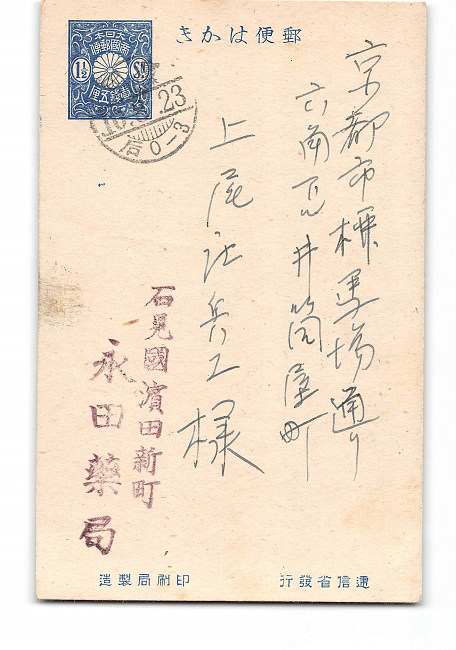 郵便はかき
大日本
帝國郵便
壹錢五厘
1½ Sn
23
后0-3
京都市堺町通り
六角下ル井筒屋町
上尾庄兵衛様
石見國濱田新町
永田藥局
遞信省發行
印刷局製造